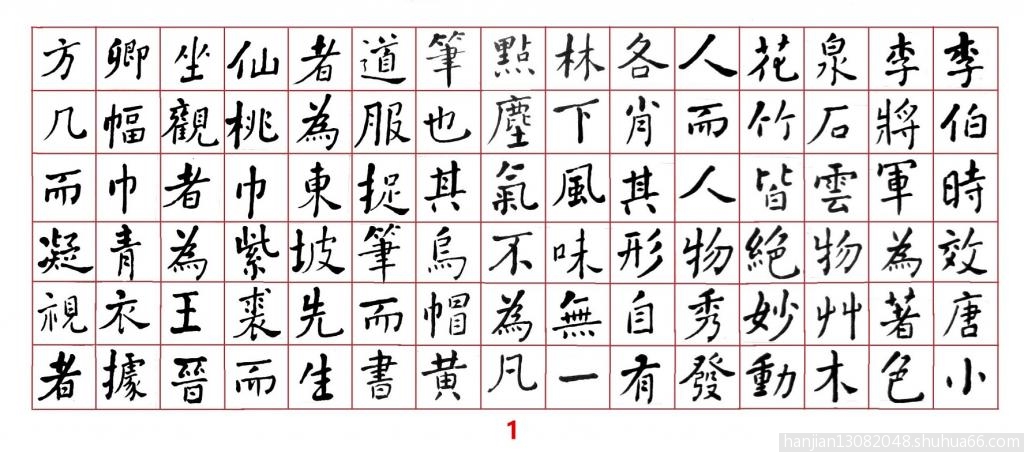 李伯時效唐小
李將軍為著色
泉石雲物艸木
花竹皆絕妙動
人而人物秀發
各肖其形自有
林下風味無一
點塵氣不為凡
筆也其烏帽黃
道服捉筆而書
者為東坡先生
仙桃巾紫裘而
坐觀者為王晉
卿幅巾青衣據
方几而凝視者
1
hanjian13082048.shuhua66.com